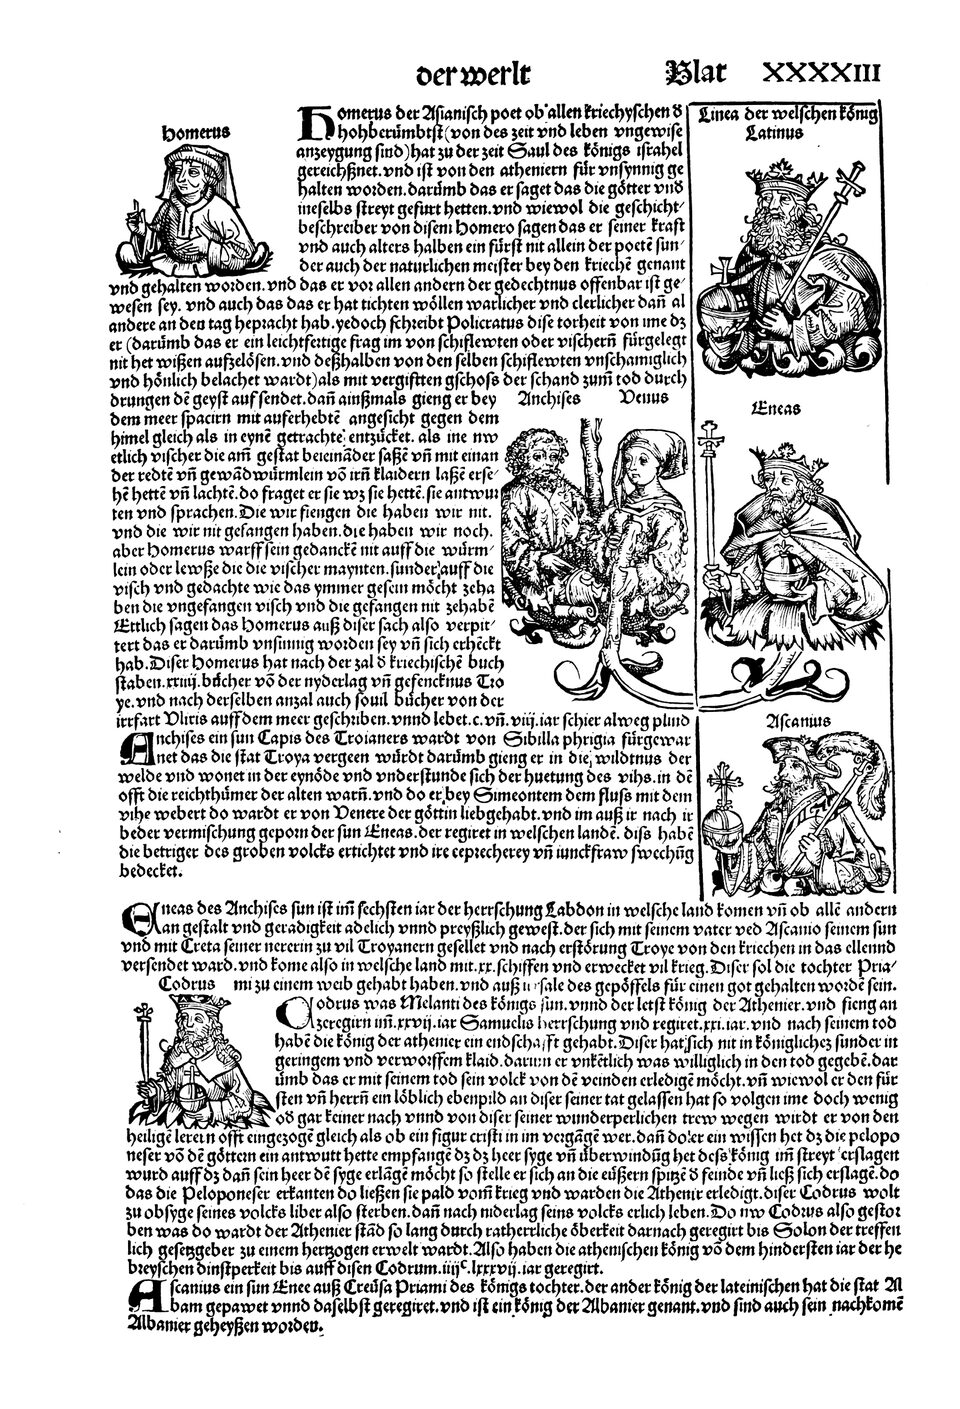 der werlt Blat XXXXIII
Homerus
Homerus der Asianisch poet ob allen kriechyschen d
hohberümbtst (von des zeit vnd leben vngewise
anzeygung sind) hat zu der zeit Saul des königs israhel
gereichßnet. vnd ist von den atheniern für vnsynnig ge
halten worden. darümb das er saget das die götter vnd
ineselbs streyt gefurt hetten. vnd wiewol die geschicht-
beschreiber von disem Homero sagen das er seiner kraft
vnd auch alters halben ein fürst nit allein der poetē sun-
der auch der naturlichen meister bey den kriechē genant
vnd gehalten worden. vnd das er vor allen andern der gedechtnus offenbar ist ge-
wesen sey. vnd auch das das er hat tichten wöllen warlicher vnd clerlicher dañ al
andere an den tag hepracht hab. yedoch schreibt Policratus dise torheit von ime dz
er (darümb das er ein leichtfertige frag im von schiflewten oder vischerñ fürgelegt
nit het wißen aufzelösen. vnd deßhalben von den selben schiflewten vnschamiglich
vnd hönlich belachet wardt) als mit vergiftten gschoss der schand zum̄ tod durch
drungen dē geyst auf sendet. dañ ainßmals gieng er bey
dem meer spacirn mit auferhebtē angesicht gegen dem
himel gleich als in eynē getrachte entzücket. als ine nw
etlich vischer die am̄ gestat beieināder saßē vñ mit einan
der redtē vñ gewādwürmlein vō irñ klaidern laßē erse-
hē hettē vñ lachtē. do fraget er sie wz sie hettē. sie antwur
ten vnd sprachen. Die wir fiengen die haben wir nit.
vnd die wir nit gefangen haben. die haben wir noch.
aber Homerus warff sein gedanckē nit auff die würm-
lein oder lewße die die vischer maynten. sunder auff die
visch vnd gedachte wie das ymmer gesein möcht zeha
ben die vngefangen visch vnd die gefangen nit zehabē
Ettlich sagen das Homerus auß diser sach also verpit-
tert das er darümb vnsinnig worden sey vñ sich erhēckt
hab. Diser Homerus hat nach der zal d kriechischē buch
staben. xxiiij. bücher vō der nyderlag vñ gefencknus Tro
ye. vnd nach derselben anzal auch souil bücher von der
irrfart Vlixis auff dem meer geschriben. vnnd lebet. c. vñ. viij. iar schier alweg plind
Anchises Venus
Anchises ein sun Capis des Troianers wardt von Sibilla phrigia fürgewar
net das die stat Troya vergeen würdt darümb gieng er in die wildtnus der
welde vnd wonet in der eynöde vnd vnderstunde sich der huetung des vihs. in dē
offt die reichthümer der alten warñ. vnd do er bey Simeontem dem fluss mit dem
vihe webert do wardt er von Venere der göttin liebgehabt. vnd im auß ir nach ir
beder vermischung geporn der sun Eneas. der regiret in welschen landē. diss habē
die betriger des groben volcks ertichtet vnd ire eeprecherey vñ iunckfraw swechūg
bedecket.
Linea der welschen könig
Latinus
Eneas
Ascanius
Eneas des Anchises sun ist im̄ sechsten iar der herrschung Labdon in welsche land komen vñ ob allē andern
an gestalt vnd geradigkeit adelich vnnd preyßlich gewest. der sich mit seinem vater vnd Ascanio seinem sun
vnd mit Creta seiner nererin zu vil Troyanern gesellet vnd nach erstörung Troye von den kriechen in das ellennd
versendet ward. vnd kome also in welsche land mit. xx. schiffen vnd erwecket vil krieg. Diser sol die tochter Pria-
mi zu einem weib gehabt haben. vnd auß sale des gepöffels für einen got gehalten wordē sein.
Codrus
Codrus was Melanti des königs sun. vnnd der letst könig der Athenier. vnd fieng an
zeregirn im̄. xxvij. iar Samuelis herrschung vnd regiret. xxi. iar. vnd nach seinem tod
habē die könig der athenier ein endschafft gehabt. Diser hat sich nit in königlichez sunder in
geringem vnd verworffem klaid. darumb er vnkētlich was williglich in den tod gegebē. dar
ümb das er mit seinem tod sein volck von dē veinden erledigē möcht. vñ wiewol er den für
sten vñ herrñ ein löblich ebenpild an diser seiner tat gelassen hat so volgen ime doch wenig
od gar keiner nach vnnd von diser seiner wunderperlichen trew wegen wirdt er von den
heiligē lerern offt eingezogē gleich als ob ein figur cristi in im vergāgē wer. dañ do er ein wissen het dz die pelopo
neser vō dē göttern ein antwutt hette empfangē dz dz heer syge vñ überwindūg het dess könig im̄ streyt erslagen
wurd auff dz dañ sein heer dē syge erlāgē möcht so stelle er sich an die eüßern spitzē d feinde vñ ließ sich erslagē. do
das die Peloponeser erkanten do ließen sie pald vom̄ krieg vnd warden die Athenir erledigt. diser Codrus wolt
zu obsyge seines volcks liber also sterben. dañ nach niderlag seins volcks erlich leben. Do nw Codrus also gestor
ben was do wardt der Athenier stād so lang durch ratherrliche öberkeit darnach geregirt bis Solon der treffen
lich gesetzgeber zu einem hertzogen erwelt wardt. Also haben die athenischen könig vō dem hindersten iar der he
breyschen dinstperkeit bis auff disen Codrum. iiijc. lxxxvij. iar geregirt.
Ascanius ein sun Enee auß Creüsa Priami des königs tochter. der ander könig der lateinischen hat die stat Al
bam gepawet vnnd daselbst geregiret. vnd ist ein könig der Albanier genant. vnd sind auch sein nachkomē
Albanier geheyßen worden.